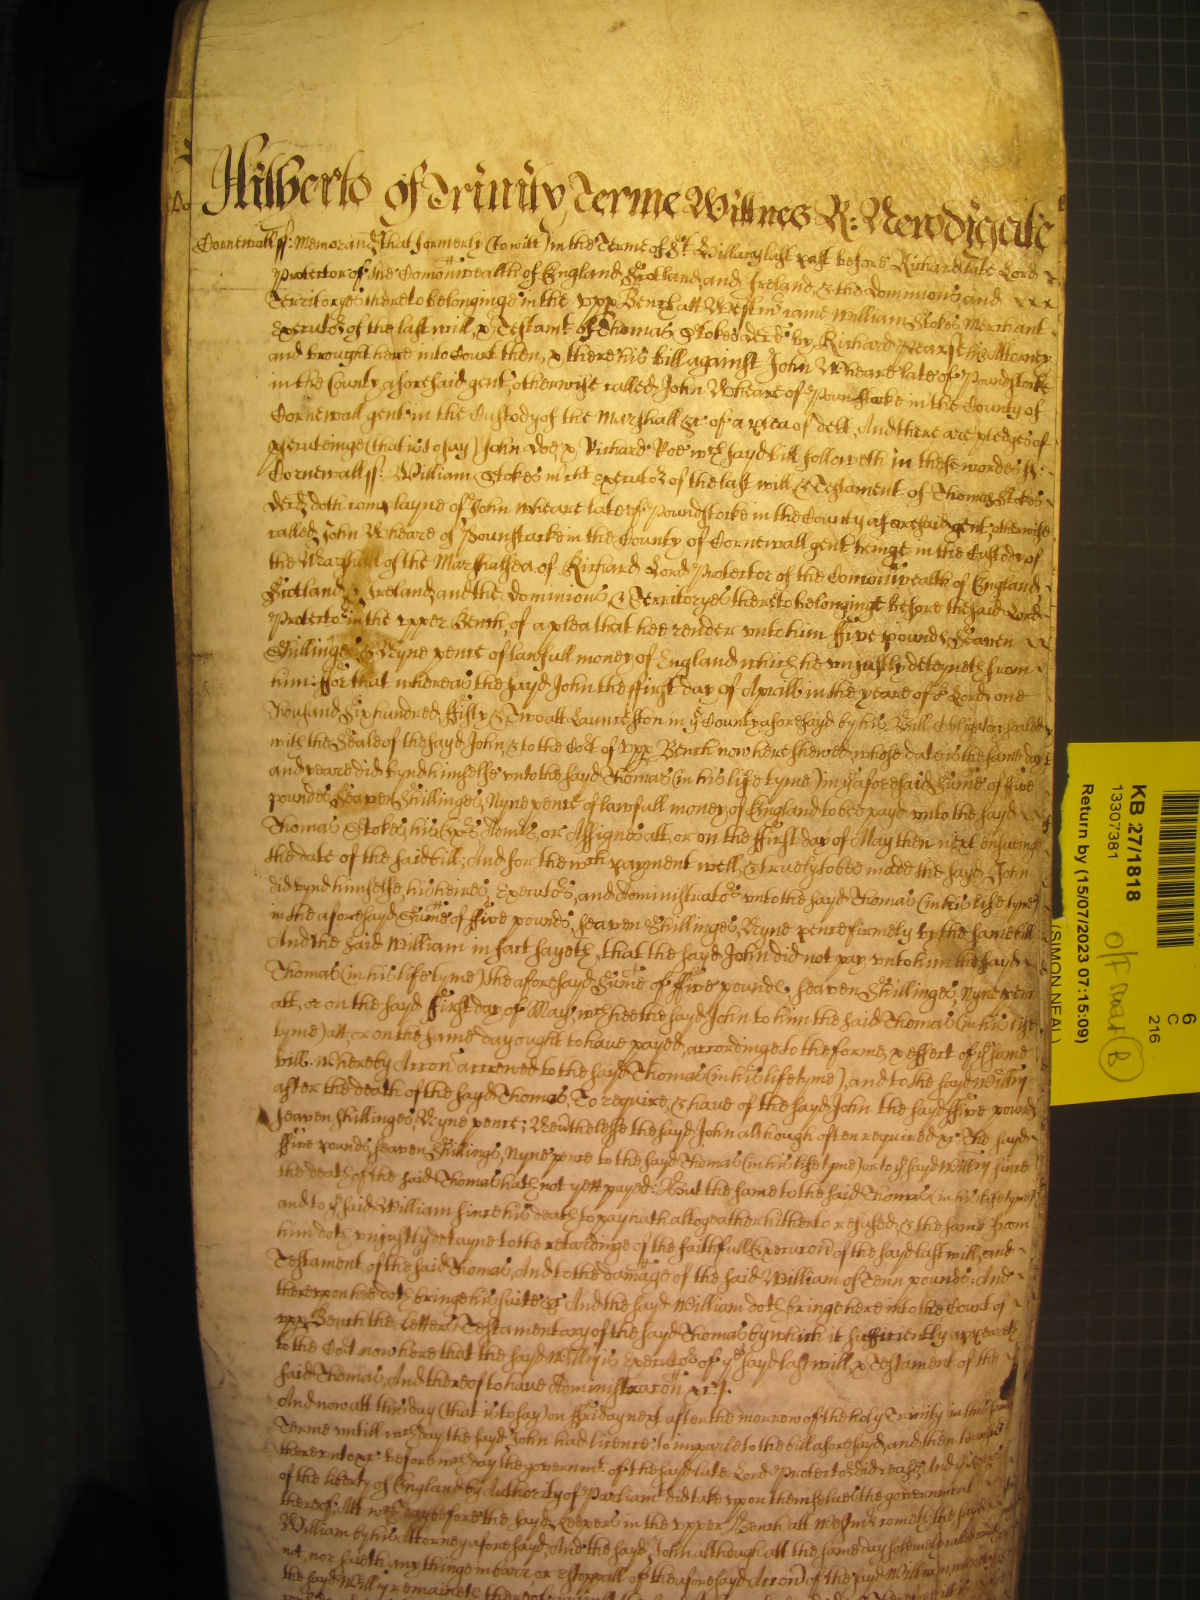 Hitherto of Trinity Terme Wittnes R: Newdigate
Cornewall ss: Memorand that formerly (to witt) in the Terme of St Hillary last past before Richard late Lord
Protector of the Comonwealth of England Scotland and Ireland & the dominions and
Territoryes thereto belonginge in the vpp Bench att Westmr came William Stokes Merchant
Executor of the last will & Testamt of Thomas Stokes decd by Richard Pearse his Attorney
and brought here into Court then & there his bill against John Wheare late of Poundstocke
in the County aforesaid gent otherwise called John Wheare of Pounstocke in the County of
Cornewall gent in the Custody of the Marshall &c of a plea of debt, And there are pledges of
prosecutinge (that is to say) John Doe & Richard Roe wch sayd bill followeth in these wordes ss:
Cornewall ss: William Stokes Executor of the last will & Testament of Thomas Stokes
decd doth complayne of John Wheare late of Poundstocke in the County aforesaid gent otherwise
called John Wheare of Pounstocke in the County of Cornewall gent beinge in the Custody of
the Marshall of the Marshalsea of Richard Lord Protector of the Comonwealth of England
Scotland & Ireland and the Dominions & Territoryes thereto belonginge before the said Lord
Protector in the vpper Bench, of a plea that hee render vnto him ffive pounds Seaven
Shillinges & Nyne pence of lawfull money of England which he vniustly deteyneth from
him: ffor that whereas the sayd John the ffirst day of Aprill in the yeare of or Lord one
thousand Six hundred ffifty & Two att Launceston in ye County aforesayd by his Bill Obligatory sealed
with the Seale of the sayd John & to the Cort of vpp Bench now here shewed whose date is the same day
and yeare did bynd himselfe vnto the sayd Thomas (in his life tyme) in ye aforesaid Sume of ffive
poundes Seaven Shillinges Nyne pence of lawfull money of England to bee payd vnto the sayd
Thomas Stokes his Exrs Admrs or Assignes att or on the ffirst day of May then next ensuinge
the date of the said bill; And for the wch payment well & truely to bee made the sayd John
did bynd himselfe, his heires Executors and Administrators vnto the sayd Thomas (in his life tyme)
in the aforesayd Sume of ffive pounds seaven Shillinges Nyne pence firmely by the same bill
And the said William in fact sayeth, that the sayd John did not pay vnto him the sayd
Thomas (in his life tyme) the aforesayd Sume of ffive pounds seaven Shillinges Nyne pence
att, or on the sayd first day of May wch hee the sayd John to him the said Thomas (in his life
tyme) att, or on the same day ought to have payed, accordinge to the forme & effect of ye same
bill. Whereby Accon accrewed to the sayd Thomas (in his life tyme), and to the sayd Willm
after the death of the sayd Thomas, To require, & have of the sayd John the sayd ffive pounds
seaven shillinges, Nyne pence; Neverthelesse the sayd John although often required &c The sayd
ffive pounds seaven Shillings, Nyne pence to the sayd Thomas (in his life tyme) or to ye sayd Willm since
the death of the said Thomas hath not yett payed: But the same to the said Thomas (in his life tyme)
and to ye said William since his death to pay hath altogeather hitherto refused, & the same from
him doth vniustly detayne to the retardinge of the faithfull Execucon of the sayd last will and
Testament of the said Thomas, And to the damage of the said William of Tenn pounds: And
therevpon hee doth bringe his suite &c And the sayd William doth bringe here into the Court of
vpp Bench the Letters Testamentary of the sayd Thomas by which it sufficiently appeareth
to the Cort now here that the sayd Willm is Executor of ye sayd last will & Testament of the
said Thomas, And thereof to have Administracon &c.
And now att this day (that is to say) on ffriday next after the morrow of the holy Trinity in this same
Terme vntill wch day the sayd John had licence to imparle to the bill aforesayd, and then to
therevnto &c before wch day the governmt of the sayd late Lord Protector did cease And ye Keepers
of the liberty of England by Authority of Parliamt did take vpon themselves the government
thereof, Att wch day before the sayd Keepers in the vpper Bench att Westmr cometh the sayd
William by his Attorney aforesayd, And the sayd John although att the same day solemnly called
not, nor saieth any thinge in barr or Estoppall of the aforesayd Accon of the sayd William
the sayd Willm remaineth therevpon
KB 27/1818
13307381
Return by (15/07/2023 07:15:09)
(SIMON NEAL)
6
C
216
O/F
B